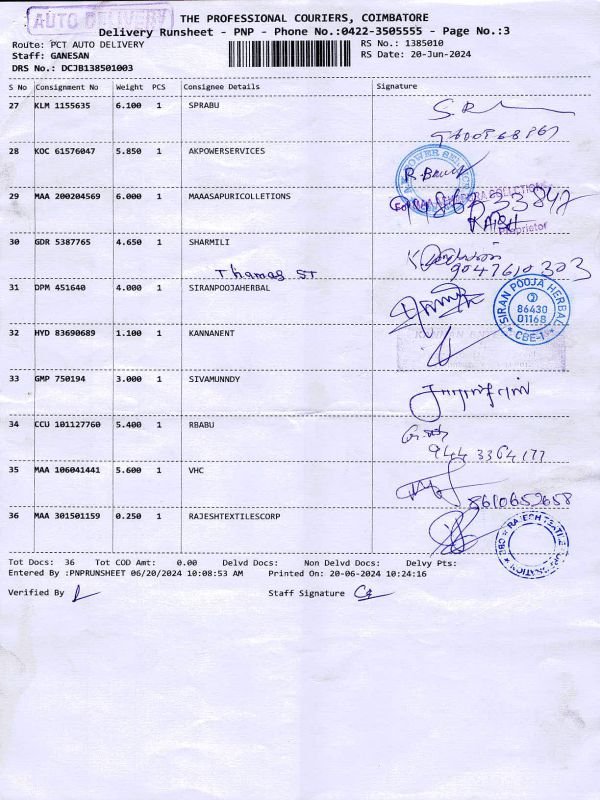 AUTO DELIVERY
THE PROFESSIONAL COURIERS, COIMBATORE
Delivery Runsheet - PNP - Phone No.:0422-3505555 - Page No.:3
Route: PCT AUTO DELIVERY
RS No.: 1385010
Staff: GANESAN
RS Date: 20-Jun-2024
DRS No.: DCJB138501003
S No Consignment No Weight PCS Consignee Details Signature
27 KLM 1155635 6.100 1 SPRABU
28 KOC 61576047 5.850 1 AKPOWERSERVICES
29 MAA 200204569 6.000 1 MAAASAPURICOLLETIONS
Proprietor
30 GDR 5387765 4.650 1 SHARMILI
9047610303
Thamas ST
31 DPM 451640 4.000 1 SIRANPOOJAHERBAL
SIRAN POOJA HERBAL
86430
01168
CBE-1
32 HYD 83690689 1.100 1 KANNANENT
33 GMP 750194 3.000 1 SIVAMUNNDY
34 CCU 101127760 5.400 1 RBABU
35 MAA 106041441 5.600 1 VHC
8610652658
36 MAA 301501159 0.250 1 RAJESHTEXTILESCORP
Tot Docs: 36 Tot COD Amt: 0.00 Delvd Docs: Non Delvd Docs: Delvy Pts:
Entered By :PNPRUNSHEET 06/20/2024 10:08:53 AM Printed On: 20-06-2024 10:24:16
Verified By
Staff Signature